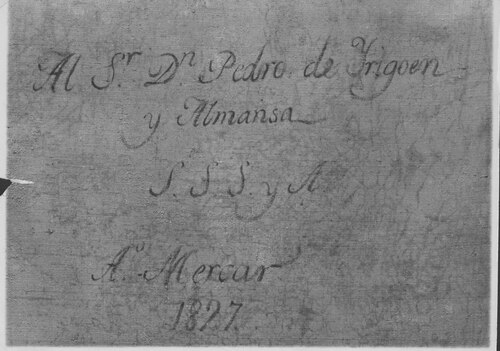 Al Sr. Dn Pedro de Yrigoen
y Almansa
S. S. S. y A
Ao. Mercar
1827.